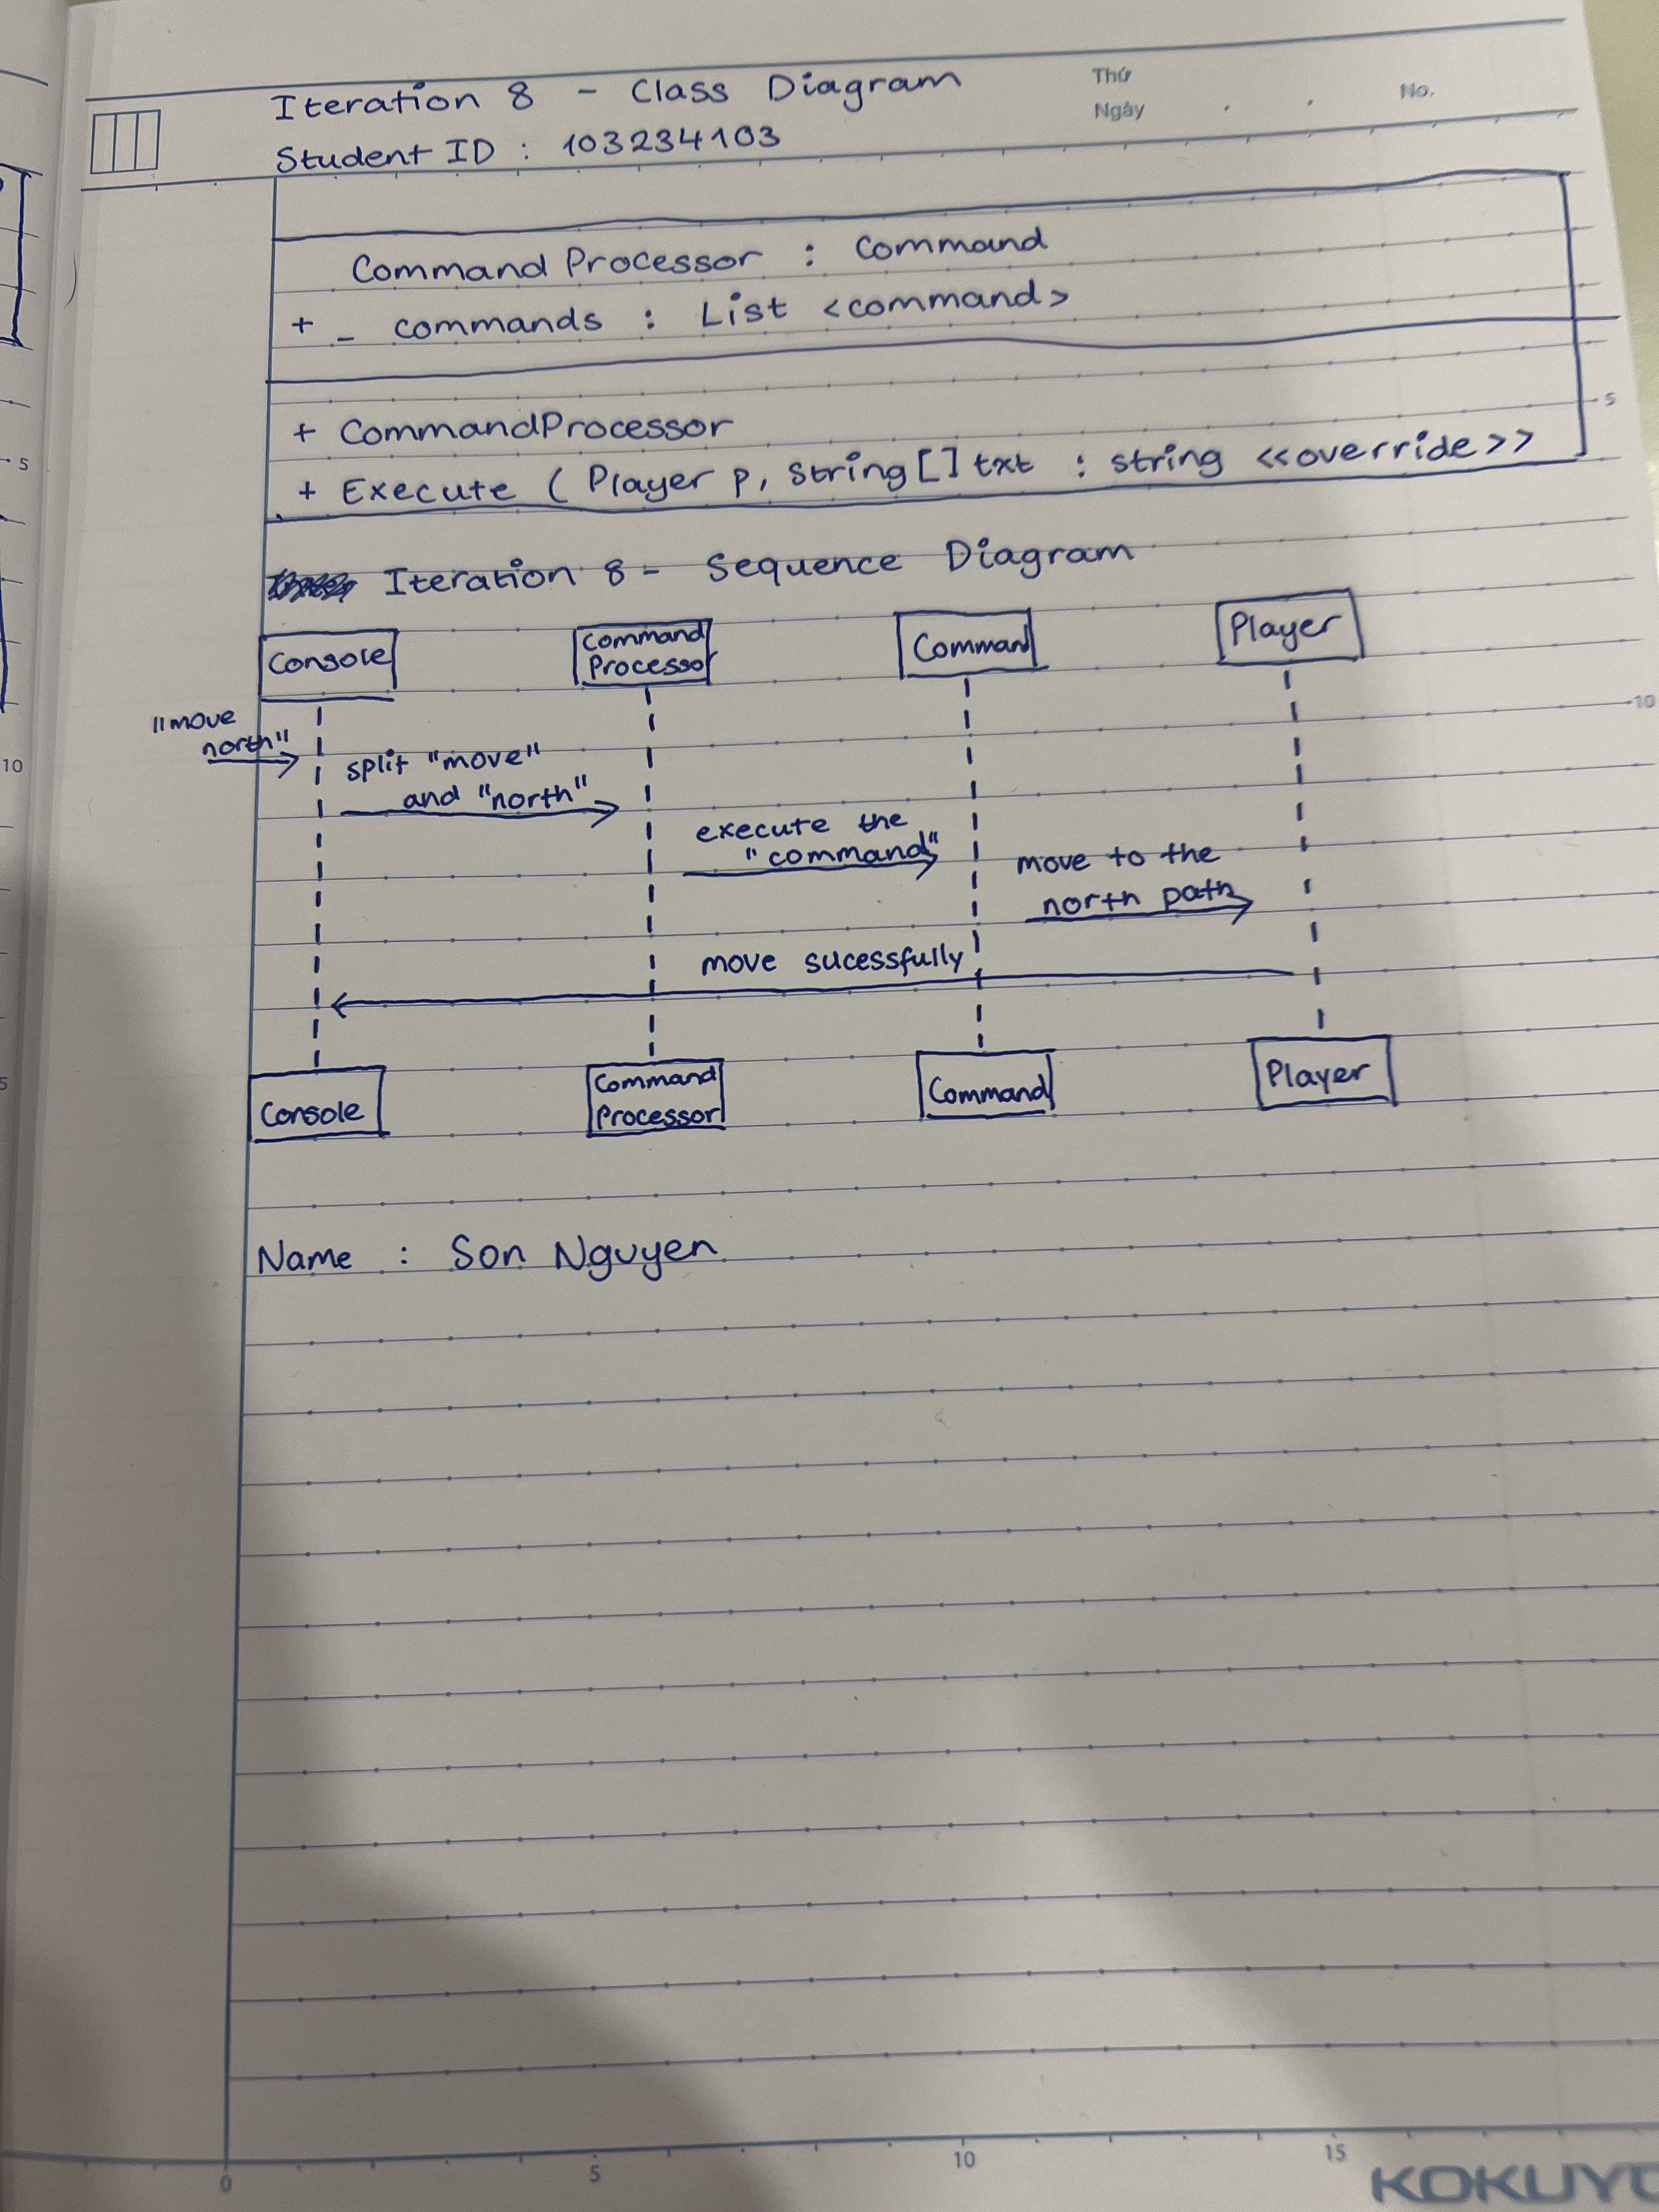 Iteration 8 - Class Diagram
Thứ
Ngày
No.
Student ID : 103234103
CommandProcessor : Command
+ _ commands : List <command>
+ CommandProcessor
5
+ Execute ( Player p, string[] txt : string <<override>>
5
Iteration 8 - Sequence Diagram
Console
Command
Processor
Command
Player
"move
north"
10
10
split "move"
and "north"
execute the
"command"
move to the
north path
move sucessfully
Console
Command
Processor
Command
Player
5
Name : Son Nguyen
0
5
10
15
KOKUYO